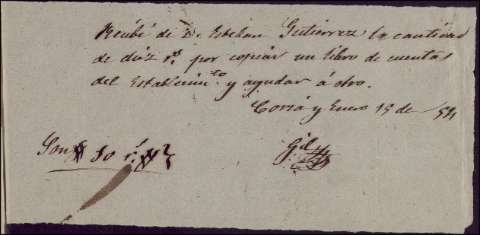 Recibí de D. Esteban Gutierrez la cantidad
de diez r.s por copiar un libro de cuentas
del Establecim.to y ayudar á otro.
y Enero 19 de
Son 10 r.s
Gil